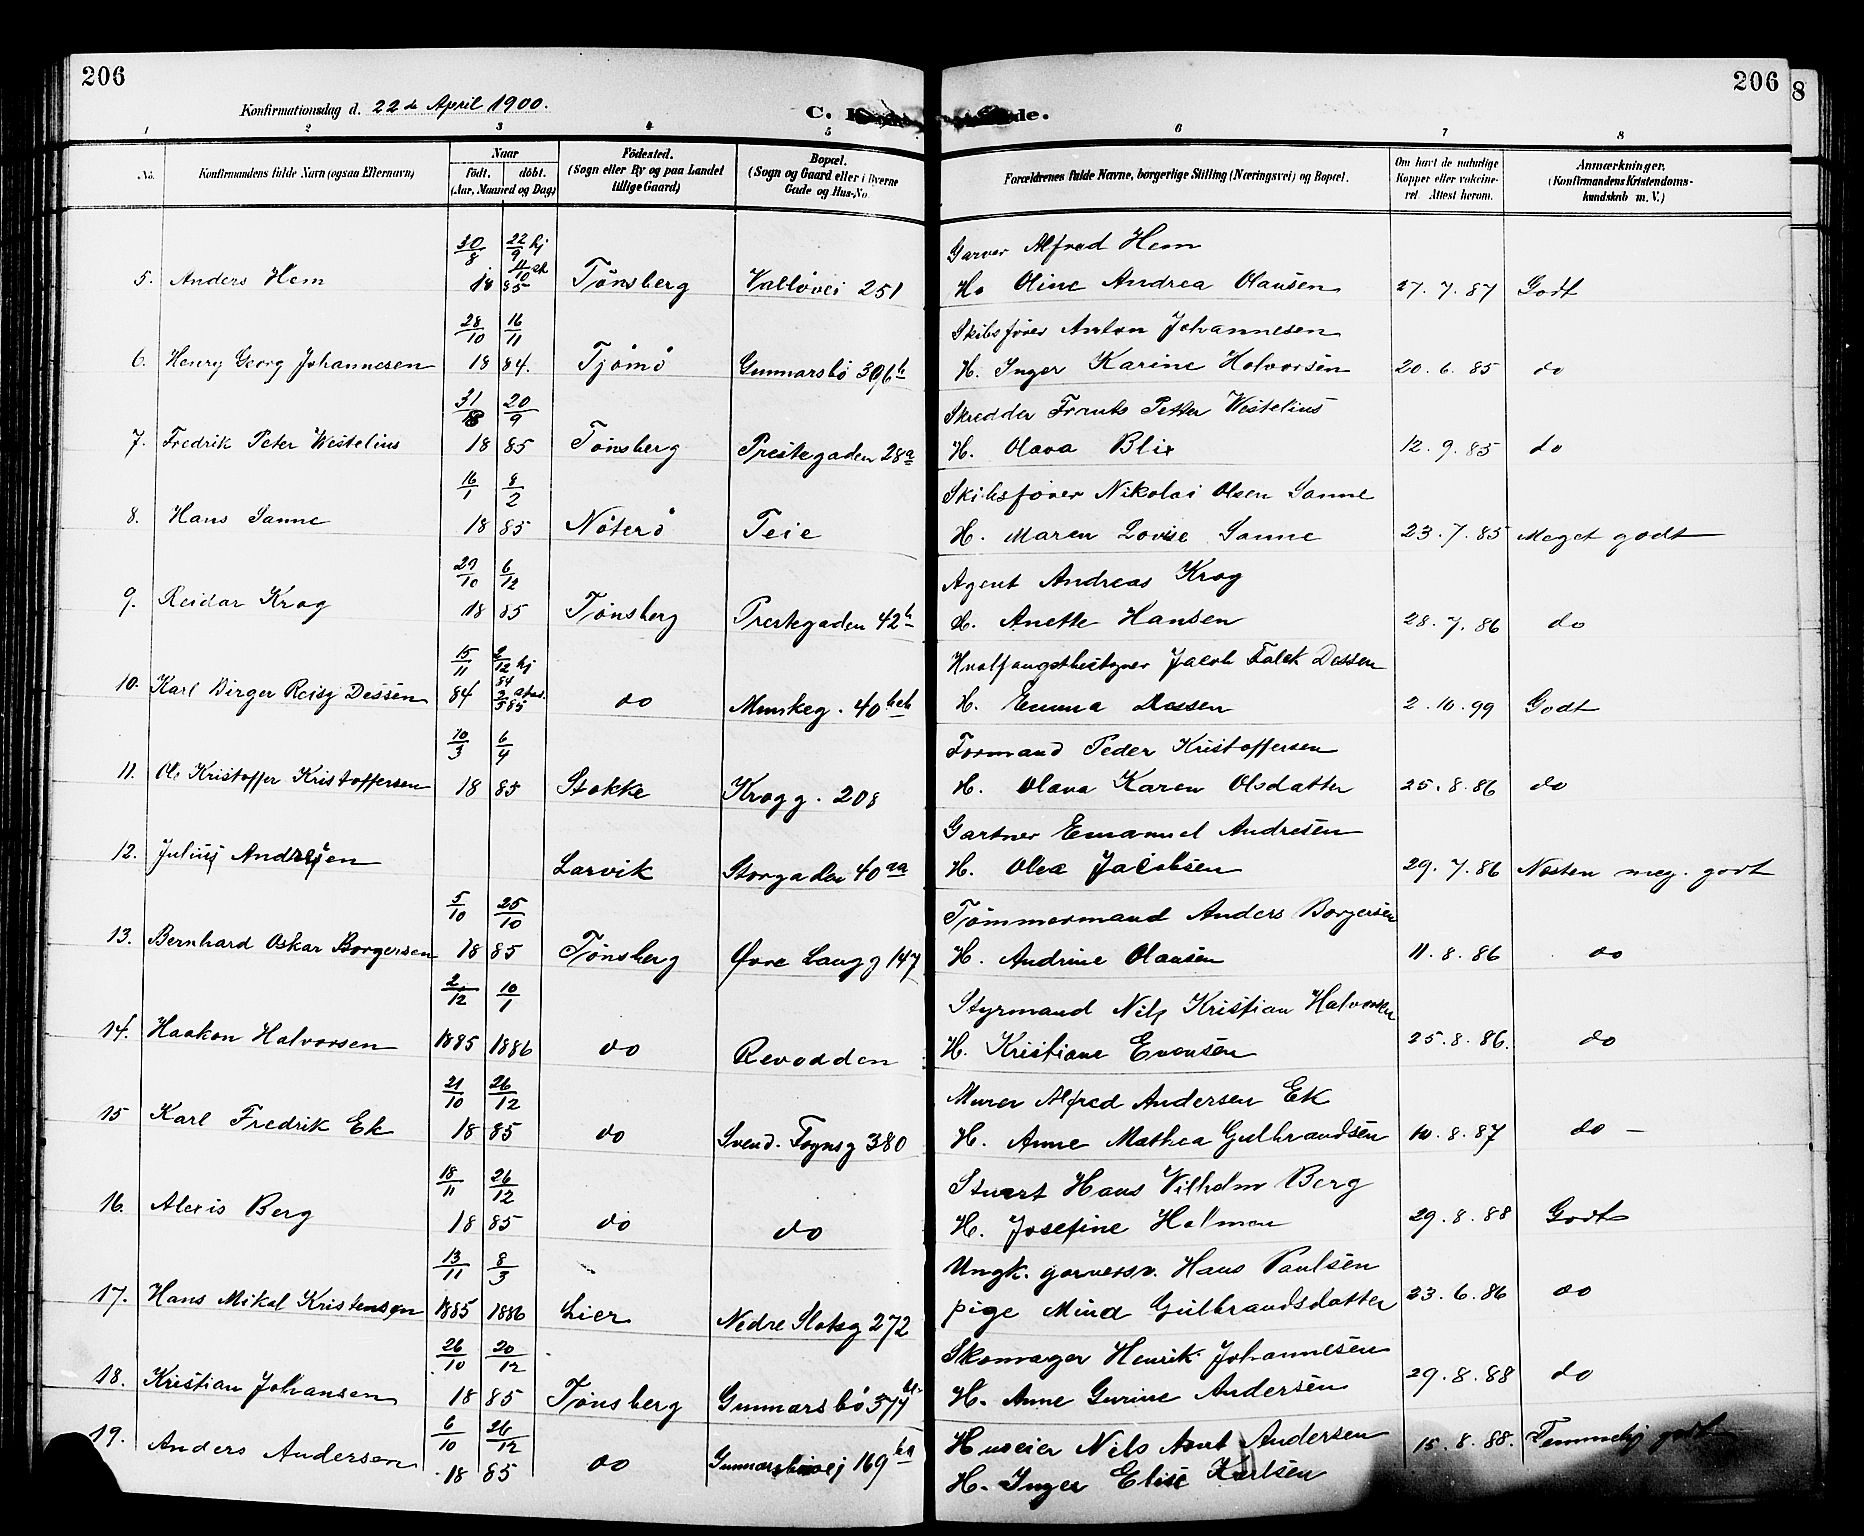 206
206
8
Konfirmationsdag d. 22de April 1900.
C. de.
1 2 3 4 5 6 7 8
No. Konfirmandens fulde Navn (ogsaa Efternavn) Naar Födested. Bopæl. Forældrenes fulde Navne, borgerlige Stilling (Næringsvei) og Bopæl. Om havt de naturlige Anmærkninger.
födt. döbt. (Sogn eller By og paa Landet (Sogn og Gaard eller i Byerne Kopper eller vakcine- (Konfirmandens Kristendoms-
(Aar, Maaned og Dag) tillige Gaard) Gade og Hus-No. ret. Attest herom. kundskab m. V.)
30/8 22/9 hj 4/10 Garver Alfred Hem
5. Anders Hem 18 85 Tønsberg Valløvei 251 H. Oline Andrea Olausen 27.7.87 Godt
28/10 16/11 Skibsfører Anton Johannesen
6. Henry Georg Johannesen 18 84. Tjömö Gunnarsbö 396b H. Inger Karine Halvorsen 20.6.85 do
31/8 20/9 Skredder Frants Petter Westelius
7. Fredrik Peter Westelius 18 85 Tønsberg Prestegaden 28a H. Olava Blix 12.9.85 do
16/1 8/2 Skibsfører Nikolai Olsen Sanne
8. Hans Sanne 18 85 Nöterö Teie H. Maren Lovise Sanne 23.7.85 Meget godt
29/10 6/12 Agent Andreas Krog
9. Reidar Krog 18 85 Tønsberg Prestegaden 42b H. Anette Hansen 28.7.86 do
15/11 2/12 hj 84 Hvalfangstbestyrer Jacob Falck Dessen
10. Karl Birger Reisy Dessen 84 3/5 85 do Munkeg. 40 H. Emma Dessen 2.10.99 Godt
10/3 6/4 Formand Peder Kristoffersen
11. Ole Kristoffer Kristoffersen 18 85 Stokke Krogg. 208 H. Olava Karen Olsdatter 25.8.86 do
Gartner Emanuel Andresen
12. Julius Andresen Larvik Storgaden 40aa H. Olea Jacobsen 29.7.86 Næsten meg. godt
5/10 25/10 Tømmermand Anders Borgersen
13. Bernhard Oskar Borgersen 18 85 Tønsberg Øvre Langg 147 H. Andrine Olausen 11.8.86 do
2/12 10/1 Styrmand Nils Kristian Halvorsen
14. Haakon Halvorsen 1885 1886 do Revodden H. Kristiane Evensen 25.8.86. do
21/10 26/12 Murer Alfred Andersen Ek
15 Karl Fredrik Ek 18 85 do Svend Foynsg 380 H. Anne Mathea Gulbrandsen 10.8.87 do –
18/11 26/12 Stuert Hans Vilhelm Berg
16. Alexis Berg 18 85 do do H. Josefine Holmen 29.8.88 Godt
13/11 8/3 Ungk. garversv. Hans Paulsen
17. Hans Mikal Kristensen 1885 1886 Lier Nedre Slotsg 272 pige Mina Gulbrandsdatter 23.6.86 do
26/10 20/12 Skomager Henrik Johannesen
18. Kristian Johansen 18 85 Tønsberg Gunnarsbö 377 H. Anne Gurine Andersen 29.8.88 do
6/10 26/12 Huseier Nils Andersen
19. Anders Andersen 18 85 do Gunnarsbövej 169 H. Inger Elise Karlsen 15.8.88. Temmelig godt